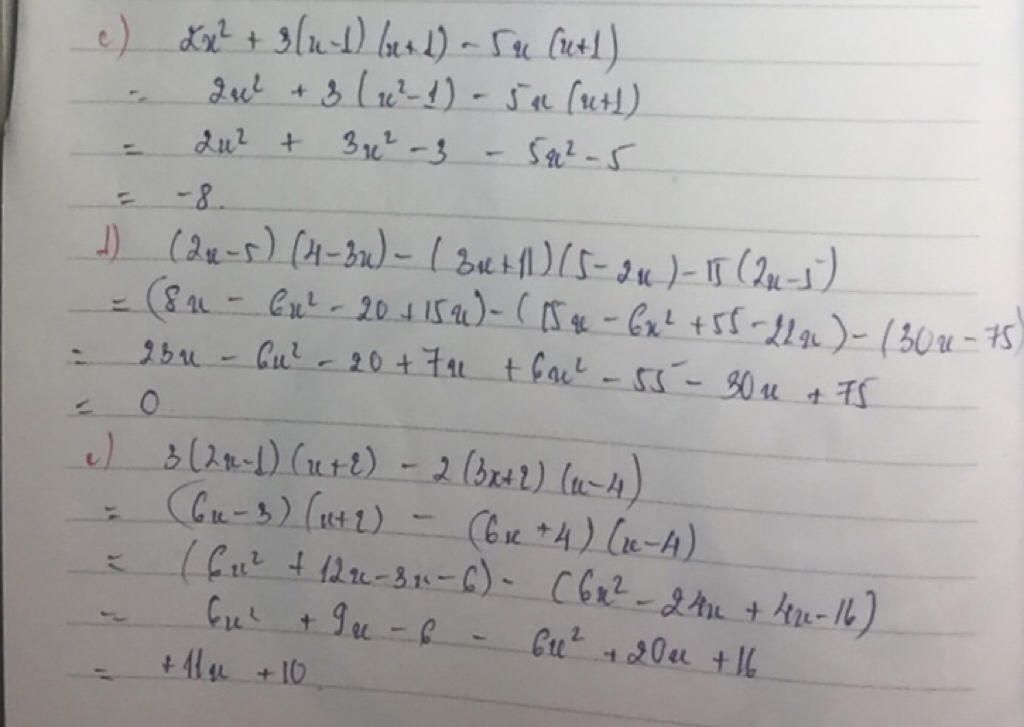 c) 2x² + 3(x-1)(x+1) - 5x(x+1)
= 2x² + 3(x²-1) - 5x(x+1)
= 2x² + 3x² - 3 - 5x² - 5
= -8.
d) (2x-5)(4-3x) - (3x+11)(5-2x) - 15(2x-5)
= (8x - 6x² - 20 + 15x) - (15x - 6x² + 55 - 22x) - (30x - 75)
= 23x - 6x² - 20 + 7x + 6x² - 55 - 30x + 75
= 0
e) 3(2x-1)(x+2) - 2(3x+2)(x-4)
= (6x-3)(x+2) - (6x+4)(x-4)
= (6x² + 12x - 3x - 6) - (6x² - 24x + 4x - 16)
= 6x² + 9x - 6 - 6x² + 20x + 16
= +11x + 10